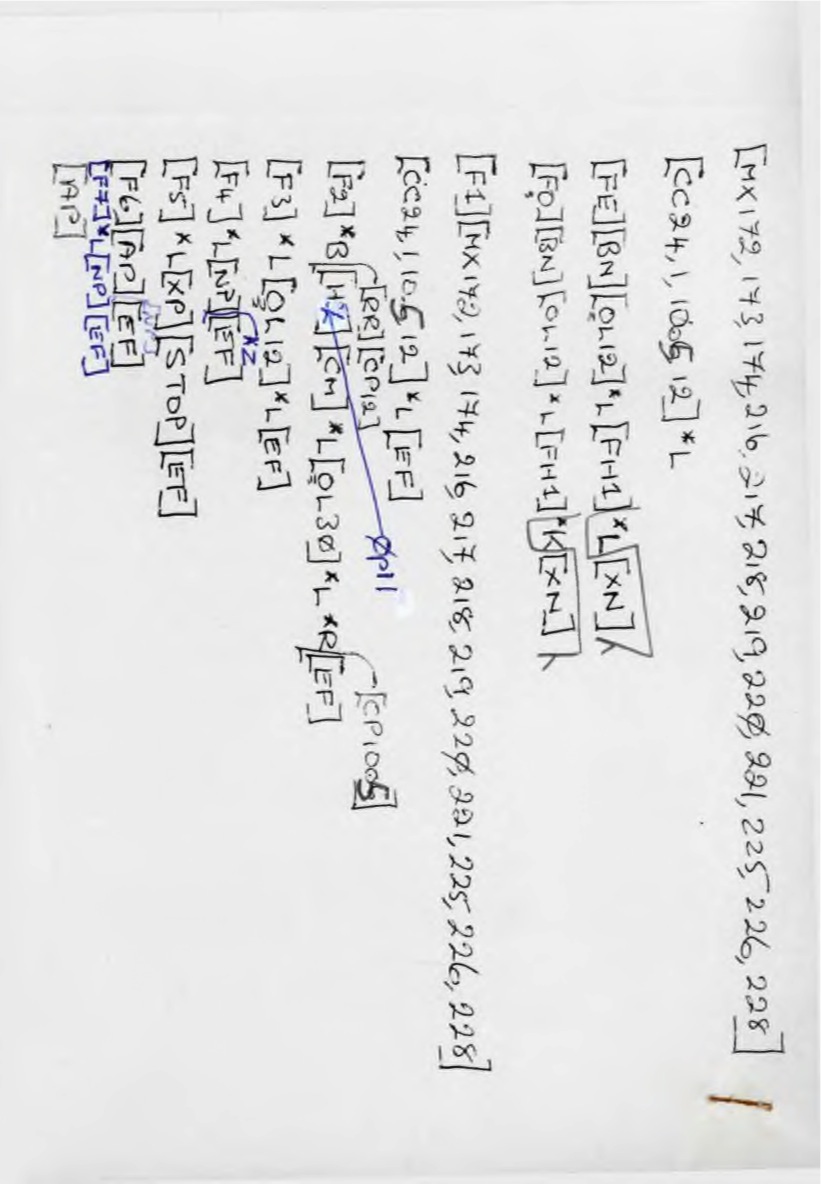 [MX172, 173, 174, 216, 217, 218, 219, 22Ø, 221, 225, 226, 228]
[CC24, 1, 10.5, 12] *L
[FE][BN][OL12]*L[FH1]*L[XN]
[FO][BN][OL12]*L[FH1]*K[XN]
[F1][MX172, 173, 174, 216, 217, 218, 219, 22Ø, 221, 225, 226, 228]
[CC24, 1, 10.5, 12]*L[EF]
[RR][CP12] ØP11 [CP10.5]
[F2]*B[H][CM]*L[OL3Ø]*L*R[EF]
[F3]*L[OL12]*L[EF]
*Z
[F4]*L[NP][EF]
[F5]*L[XP][STOP][EF]
[F6][AP][EF]
[F7]*L[NP][EF]
[AP]